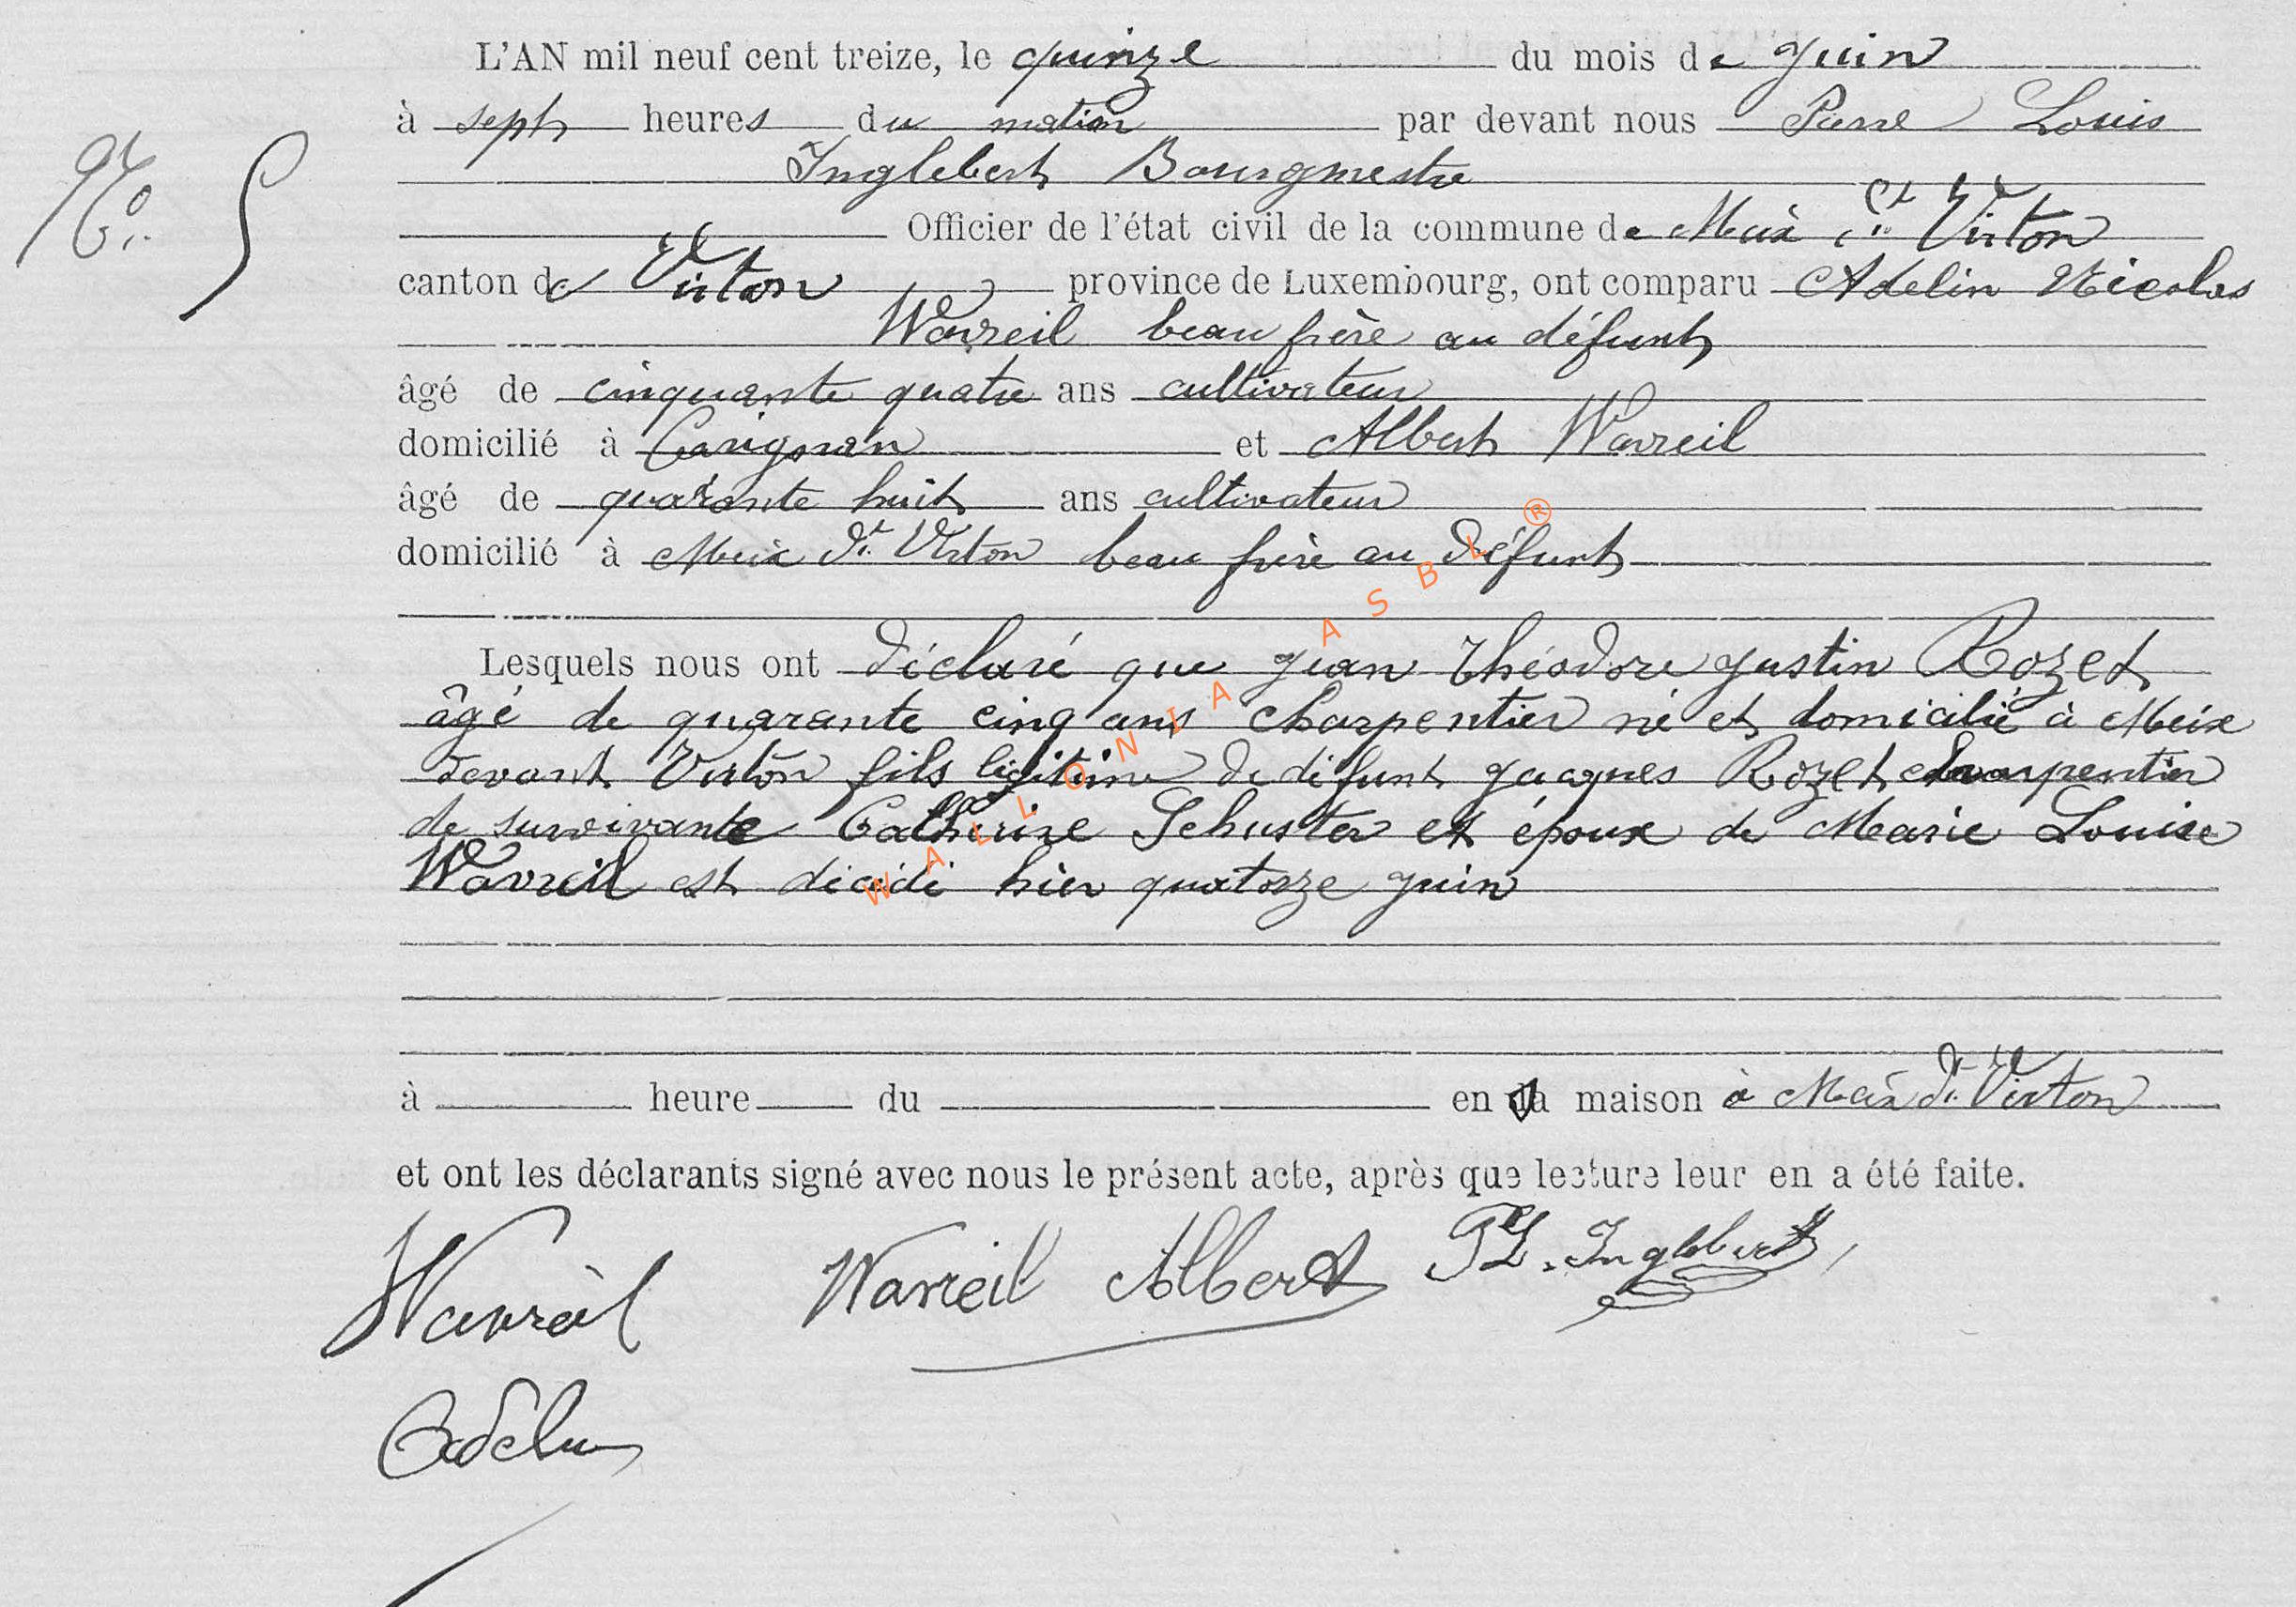 L'AN mil neuf cent treize, le quinze du mois de Juin
à sept heures du matin par devant nous Pierre Louis
Inglebert Bourgmestre
Officier de l'état civil de la commune de Meix dt Virton
canton de Virton province de Luxembourg, ont comparu Adelin Nicolas
Wavreil beau frère au défunt
âgé de cinquante quatre ans cultivateur
domicilié à Carignan et Albert Wavreil
âgé de quarante huit ans cultivateur
domicilié à Meix dt Virton beau frère au défunt
Lesquels nous ont déclaré que Jean Théodore Justin Rozet
âgé de quarante cinq ans charpentier né et domicilié à Meix
devant Virton fils légitime de défunt Jacques Rozet charpentier
de survivante Catherine Schuster et époux de Marie Louise
Wavreil est décédé hier quatorze Juin
à heure du en sa maison à Meix dt Virton
et ont les déclarants signé avec nous le présent acte, après que lecture leur en a été faite.
Wavreil Wavreil Albert PL. Inglebert
Adelin
No. 5
WALLONIA ASBL ®